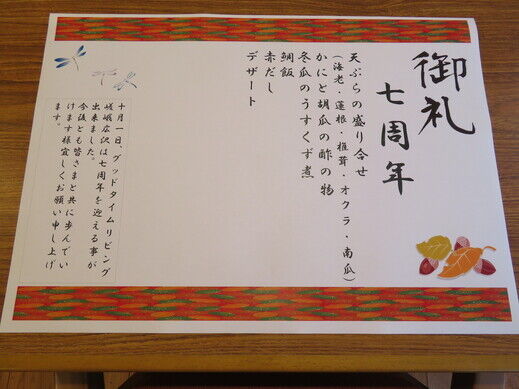 御礼
七周年
天ぷらの盛り合せ
(海老・蓮根・椎茸・オクラ・南瓜)
かにと胡瓜の酢の物
冬瓜のうすくず煮
鯛飯
赤だし
デザート
十月一日、グッドタイムリビング
嵯峨広沢は七周年を迎える事が
出来ました。
今後とも皆さまと共に歩んでい
けます様宜しくお願い申し上げ
ます。